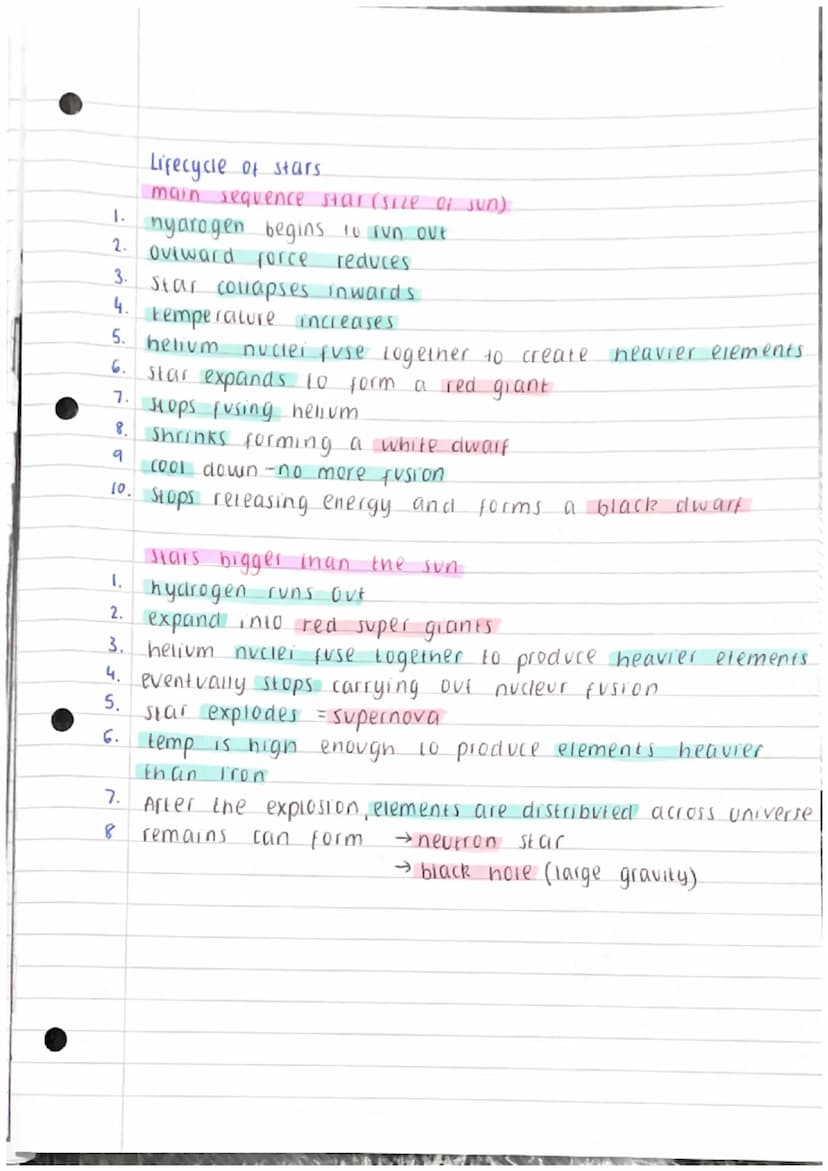 Lifecycle of stars
main sequence star (size of sun)
1. hydrogen begins to run out
2. outward force reduces
3. star collapses inwards
4. temperature increases
5. helium nuclei fuse together to create heavier elements
6. star expands to form a red giant
7. stops fusing helium
8. shrinks forming a white dwarf
9 cool down - no more fusion
10. stops releasing energy and forms a black dwarf
stars bigger than the sun
1. hydrogen runs out
2. expand into red super giants
3. helium nuclei fuse together to produce heavier elements
4. eventually stops carrying out nucleur fusion
5. star explodes = supernova
6. temp is high enough to produce elements heavier
than iron
7. After the explosion, elements are distributed across universe
8 remains can form → neutron star
→ black hole (large gravity)